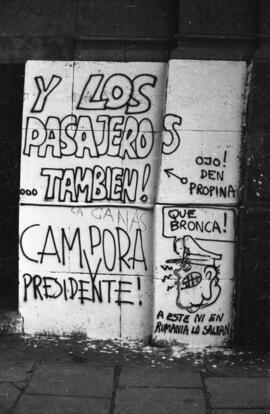 Y LOS
PASAJEROS
...TAMBIEN!
OJO!
DEN
PROPINA
LA GANAS
CAMPORA
Y
PRESIDENTE!
QUE
BRONCA!
A ESTE NI EN
RUMANIA LO SALVAN